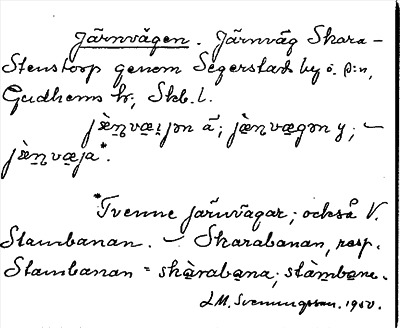 Järnvägen. Järnväg Skara –
Stenstorp genom Segerstads by o. P:n,
Gudhems hr, Skb. l.
jæ̀ṉvæıȷən ä; jæṉvægən y; –
jæ̀ṉvæja*.
*Tvenne järnvägar; också V.
Stambanan. – Skarabanan, resp.
Stambanan = skàrabana; stàmbane.
J.M. Svenningsson. 1950.